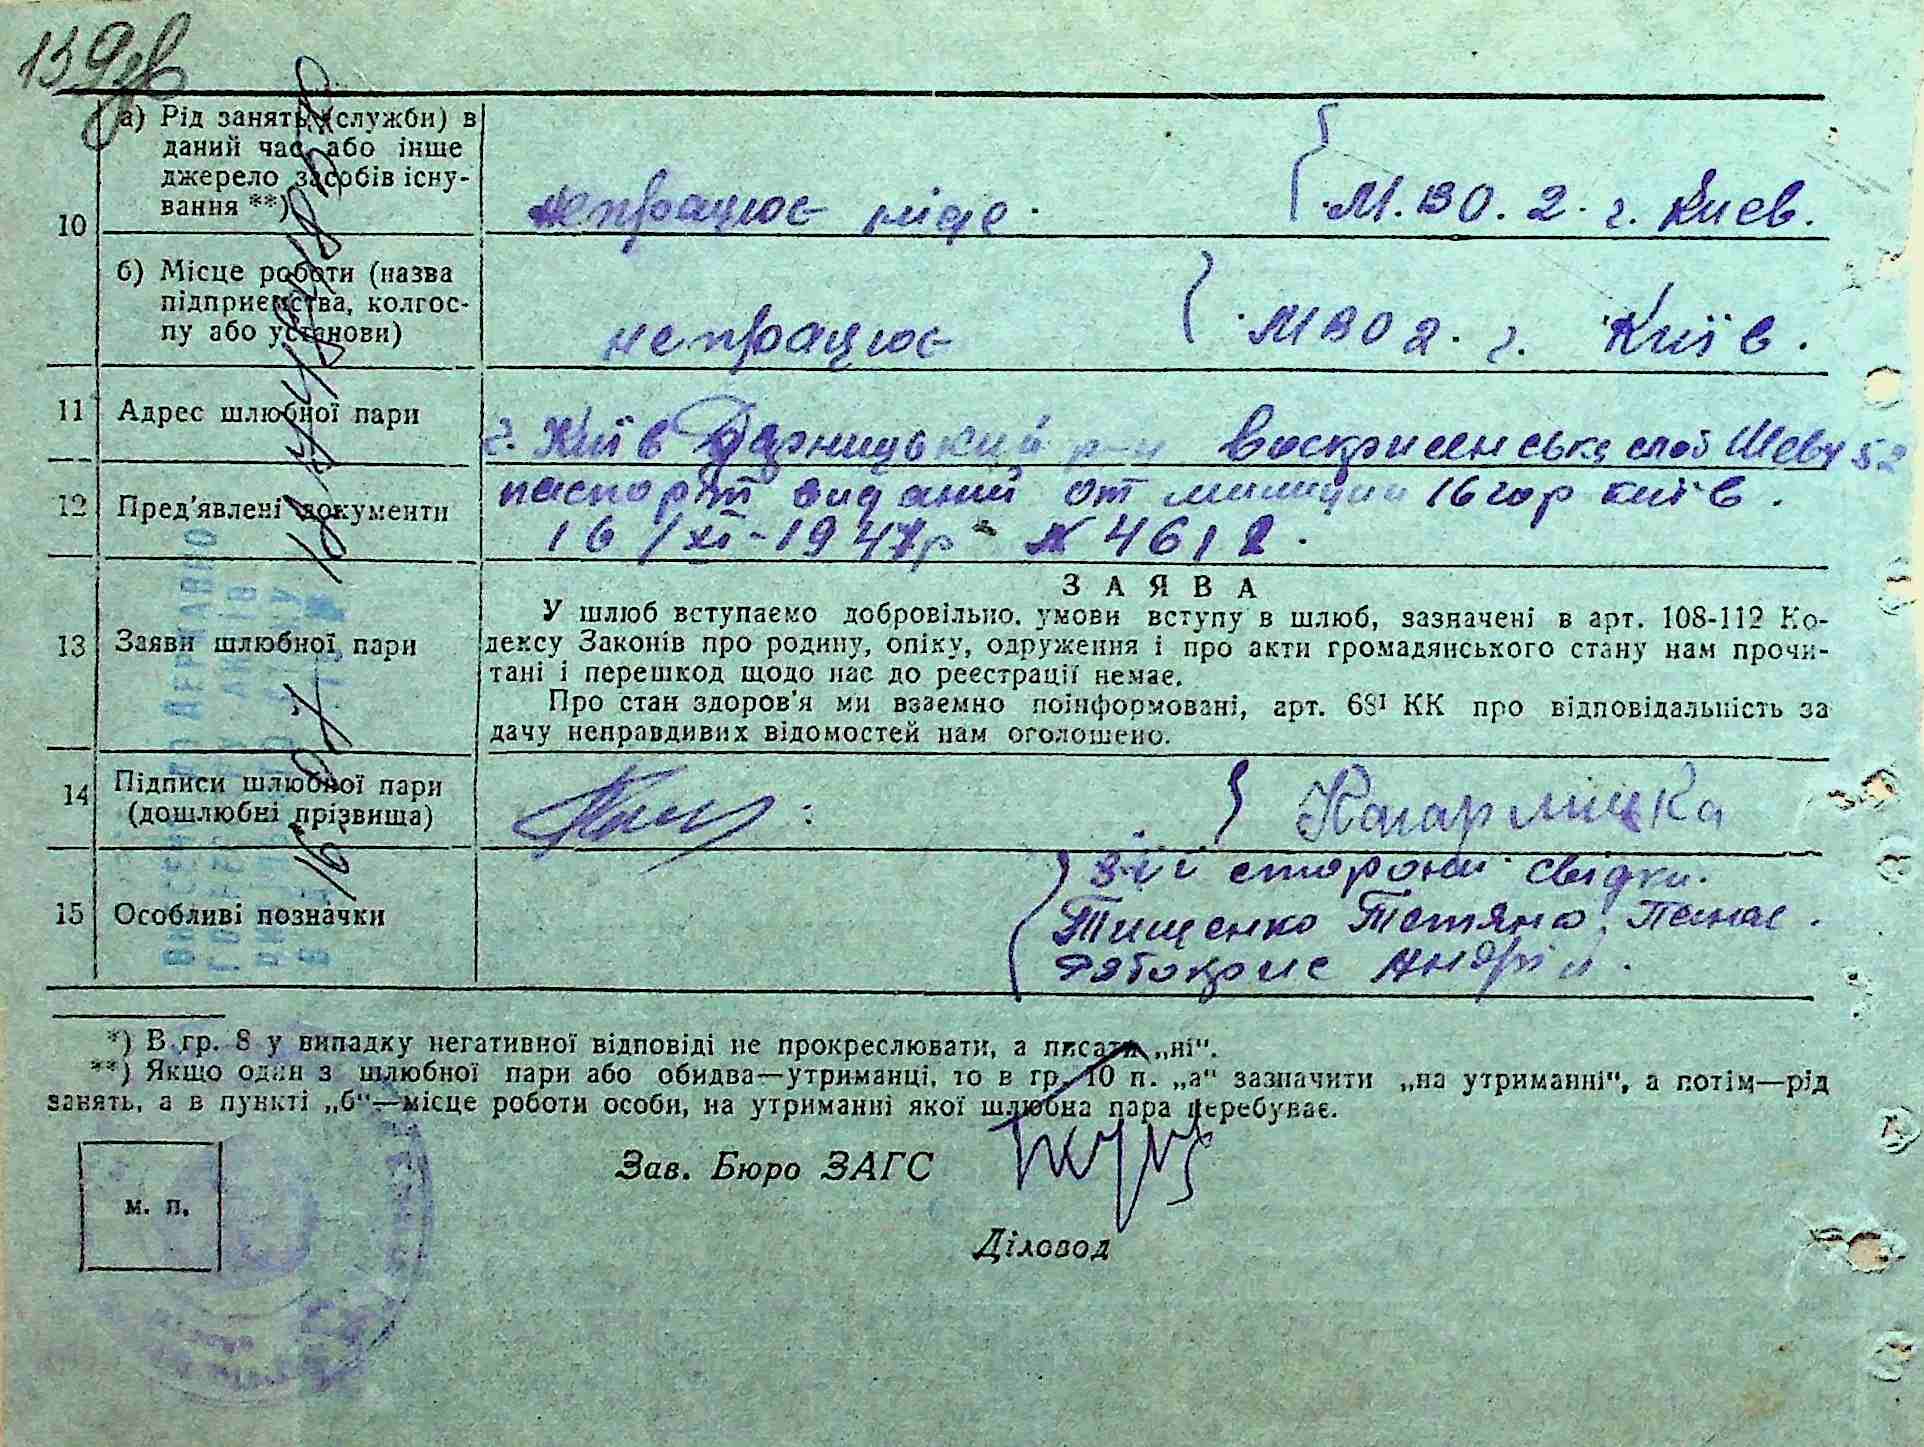 139
а) Рід занять (служби) в
даний час або інше
джерело засобів існу-
вання **)
10
непрацює ніде.
М.В.О. 2. г. Киев.
б) Місце роботи (назва
підприємства, колгос-
пу або установи)
непрацює
МВО 2. г. Київ.
11 Адрес шлюбної пари
г. Київ Дарницький р-н Воскрисенська слоб Шевч 52
12 Пред'явлені документи
паспорт виданий от милиции 16 гор київ.
16/XI-1947р N 4612.
13 Заяви шлюбної пари
ЗАЯВА
У шлюб вступаємо добровільно. умови вступу в шлюб, зазначені в арт. 108-112 Ко-
дексу Законів про родину, опіку, одруження і про акти громадянського стану нам прочи-
тані і перешкод щодо нас до реєстрації немає.
Про стан здоров'я ми взаємно поінформовані, арт. 68¹ КК про відповідальність за
дачу неправдивих відомостей нам оголошено.
14 Підписи шлюбної пари
(дошлюбні прізвища)
Кагарлицка
15 Особливі позначки
з її сторони свідки.
Тищенко Тетяна Панас.
Рябокрис Андрій.
*) В гр. 8 у випадку негативної відповіді не прокреслювати, а писати „ні“.
**) Якщо один з шлюбної пари або обидва—утриманці, то в гр. 10 п. „а“ зазначити „на утриманні“, а потім—рід
занять, а в пункті „б“—місце роботи особи, на утриманні якої шлюбна пара перебуває.
Зав. Бюро ЗАГС
м. п.
Діловод